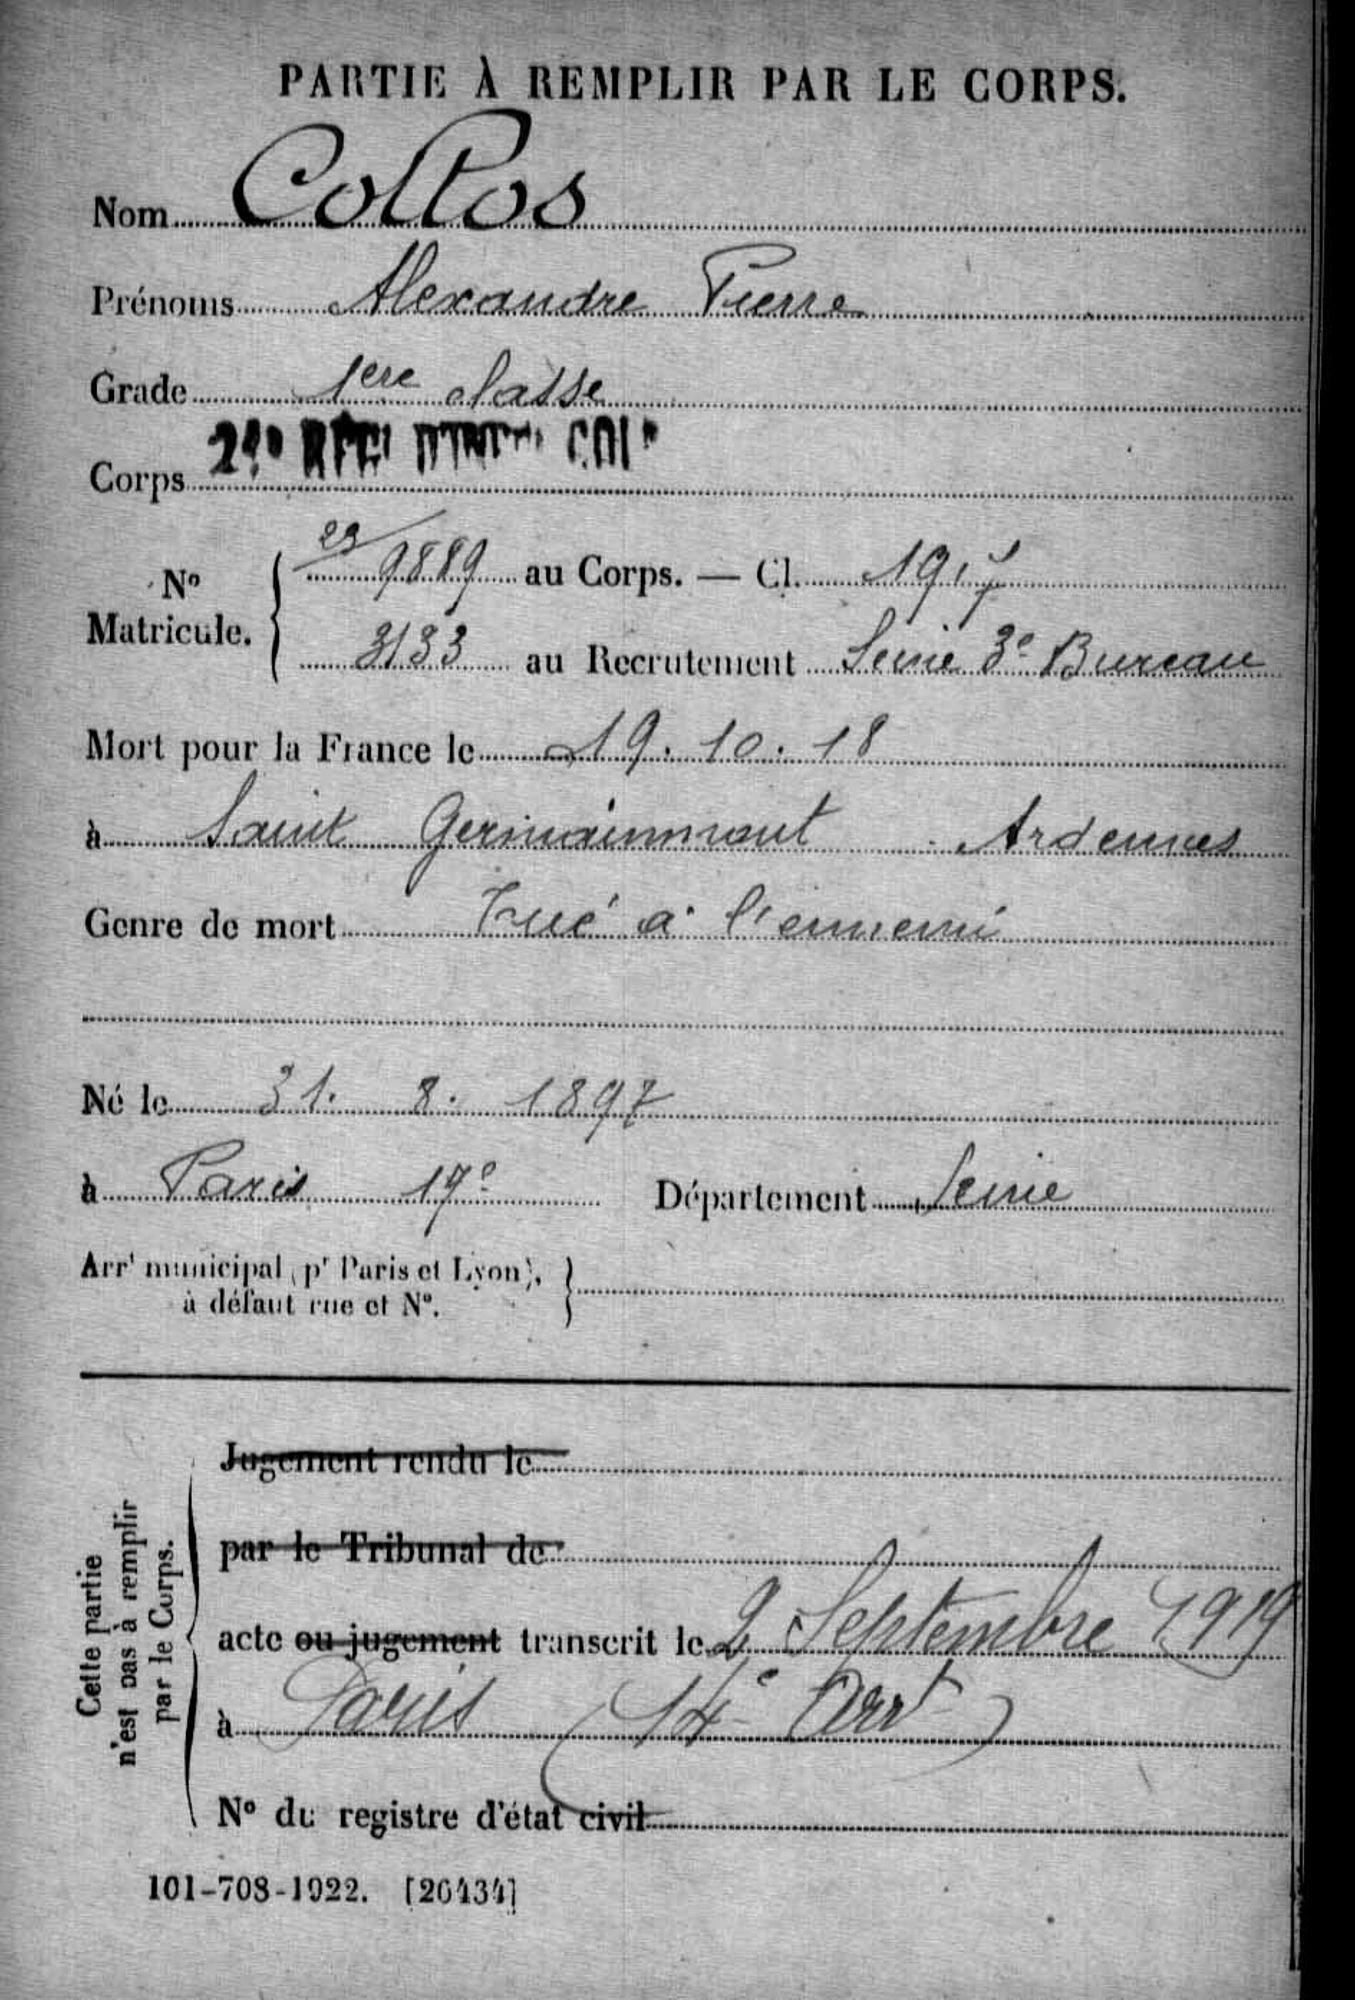 PARTIE À REMPLIR PAR LE CORPS.
Nom Collos
Prénoms Alexandre Pierre
Grade 1ere classe
Corps RÉGt D'INFie COLe
No Matricule. 23/9889 au Corps. — Cl. 1917
3133 au Recrutement Seine 3e Bureau
Mort pour la France le 19.10.18
à Saint Germainmont Ardennes
Genre de mort Tué à l'ennemi
Né le 31. 8. 1897
à Paris 17e Département Seine
Arrt municipal (pr Paris et Lyon),
à défaut rue et No.
Cette partie
n'est pas à remplir
par le Corps.
Jugement rendu le
par le Tribunal de
acte ou jugement transcrit le 2 Septembre 1919
à Paris (14e Arrt)
No du registre d'état civil
101-708-1922. [26434]